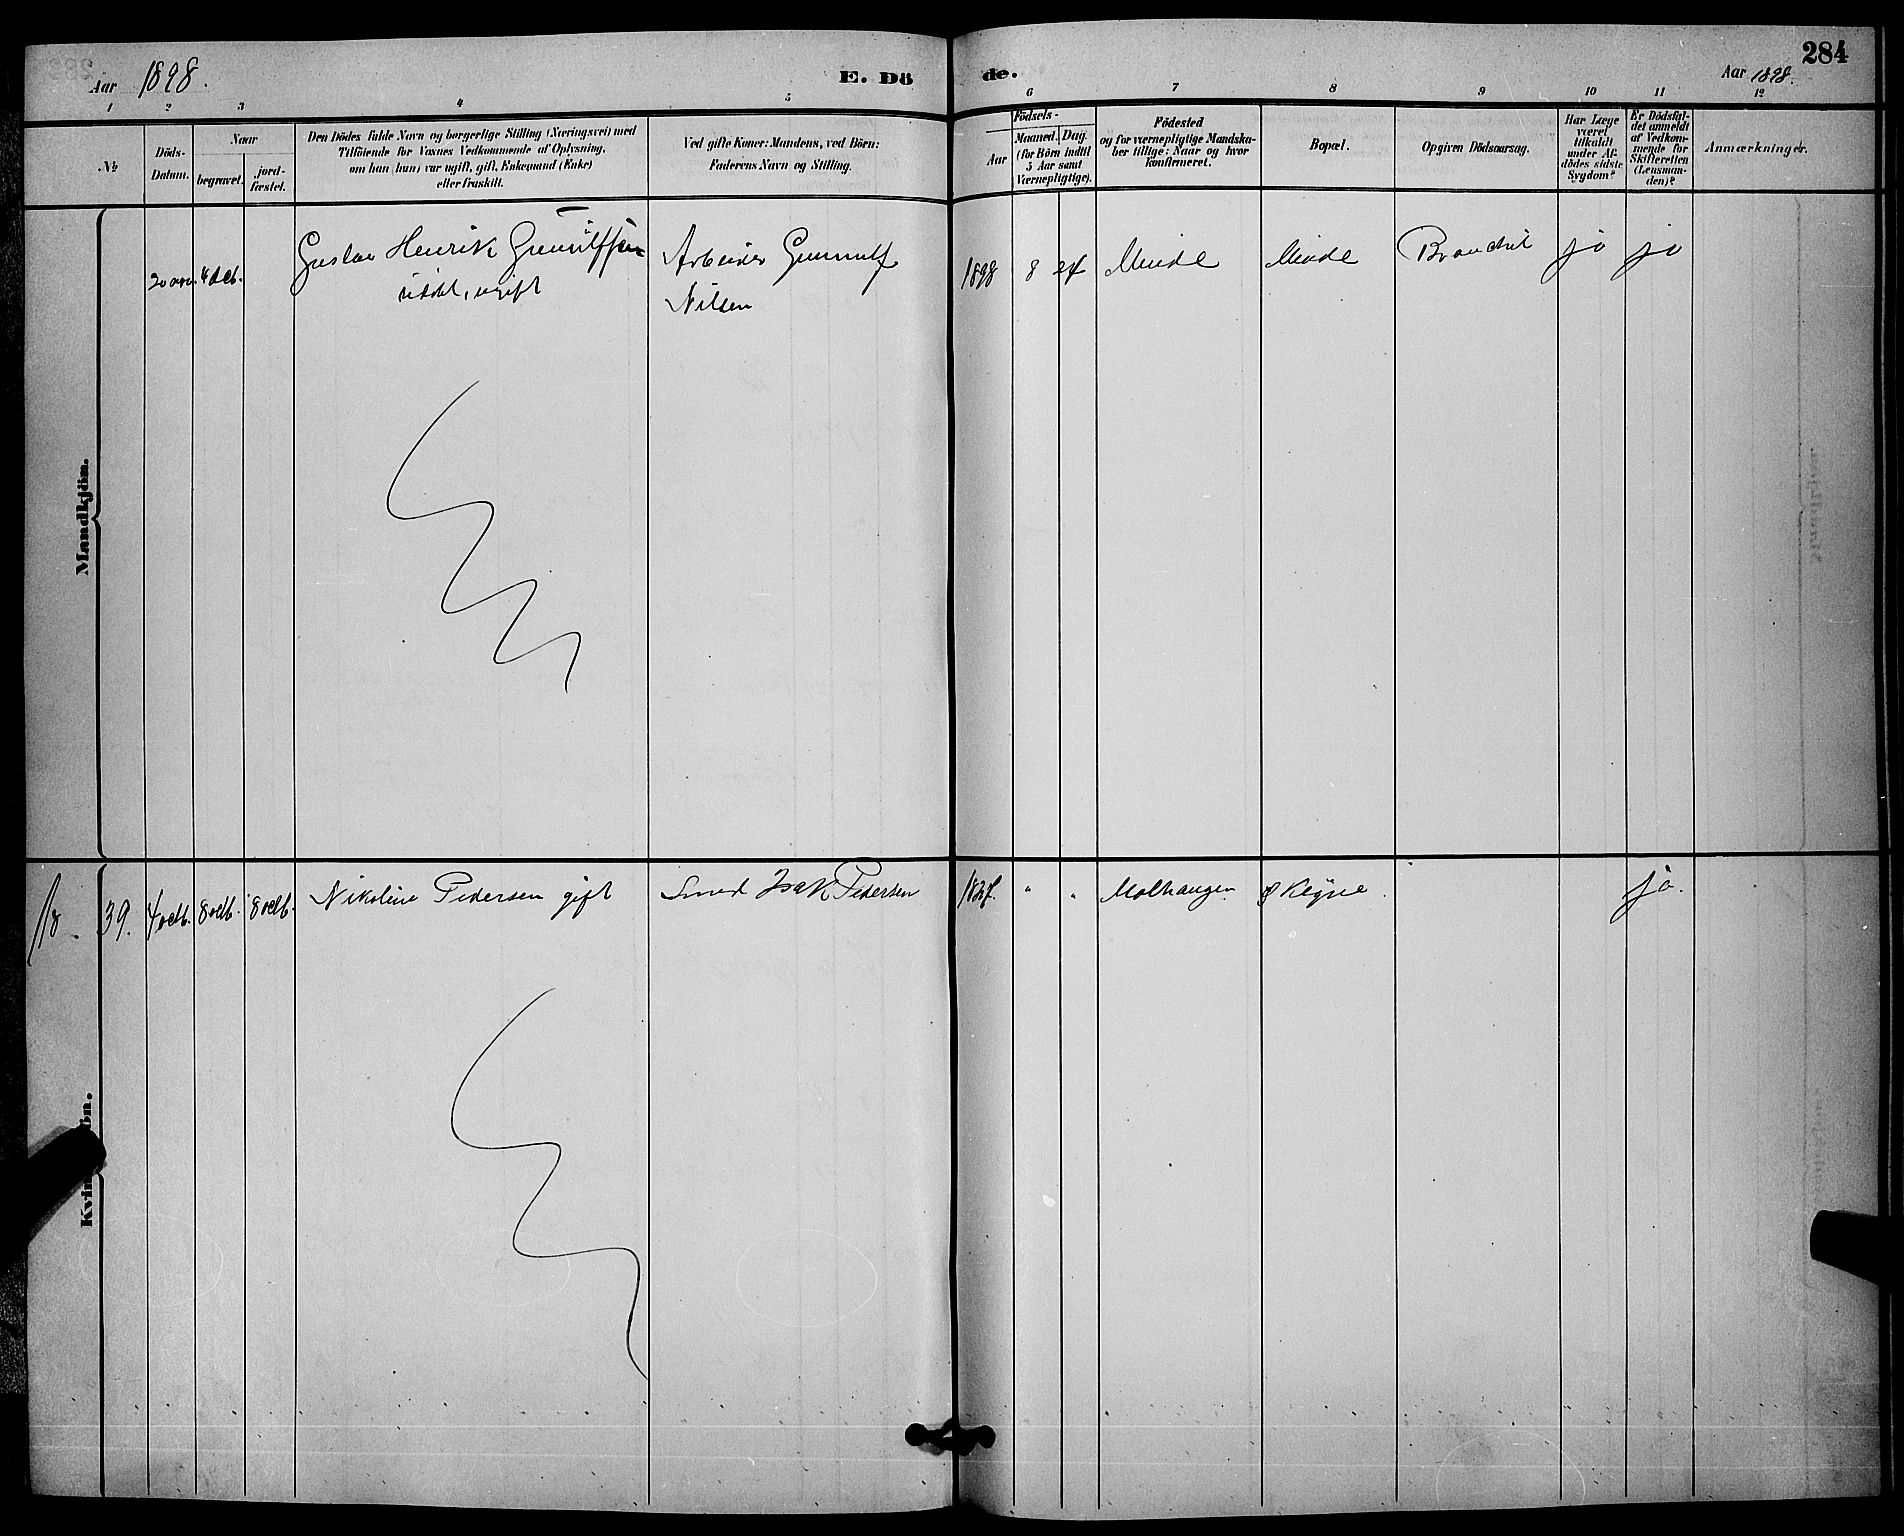 284
Aar 1898.
E. Dö
de.
Aar 1898.
1 2 3 4 5 6 7 8 9 10 11 12
№
Döds-
Datum.
Naar
begravet.
jord-
fæstet.
Den Dödes fulde Navn og borgerlige Stilling (Næringsvei) med
Tilföiende for Voxnes Vedkommende af Oplysning,
om han (hun) var ugift, gift, Enkemand (Enke)
eller fraskilt.
Ved gifte Koner: Mandens, ved Börn:
Faderens Navn og Stilling.
Födsels-
Aar
Maaned. Dag.
(for Börn indtil
5 Aar samt
Værnepligtige).
Födested
og for værnepligtige Mandska-
ber tillige: Naar og hvor
konfirmeret.
Bopæl.
Opgiven Dödsaarsag.
Har Læge
været
tilkaldt
under Af-
dödes sidste
Sygdom?
Er Dödsfal-
det anmeldt
af Vedkom-
mende for
Skifteretten
(Lensman-
den)?
Anmærkninger.
Mandkjön.
4 octb.
Gustav Henrik
ugift
Arbeider Gunnulf
Nilsen
1898 8 24 Minde Minde ja ja
39. 4 octb. 8 octb. 8 octb. Nikoline Pedersen gift Smed Isak Pedersen " " Molhaugen ja.